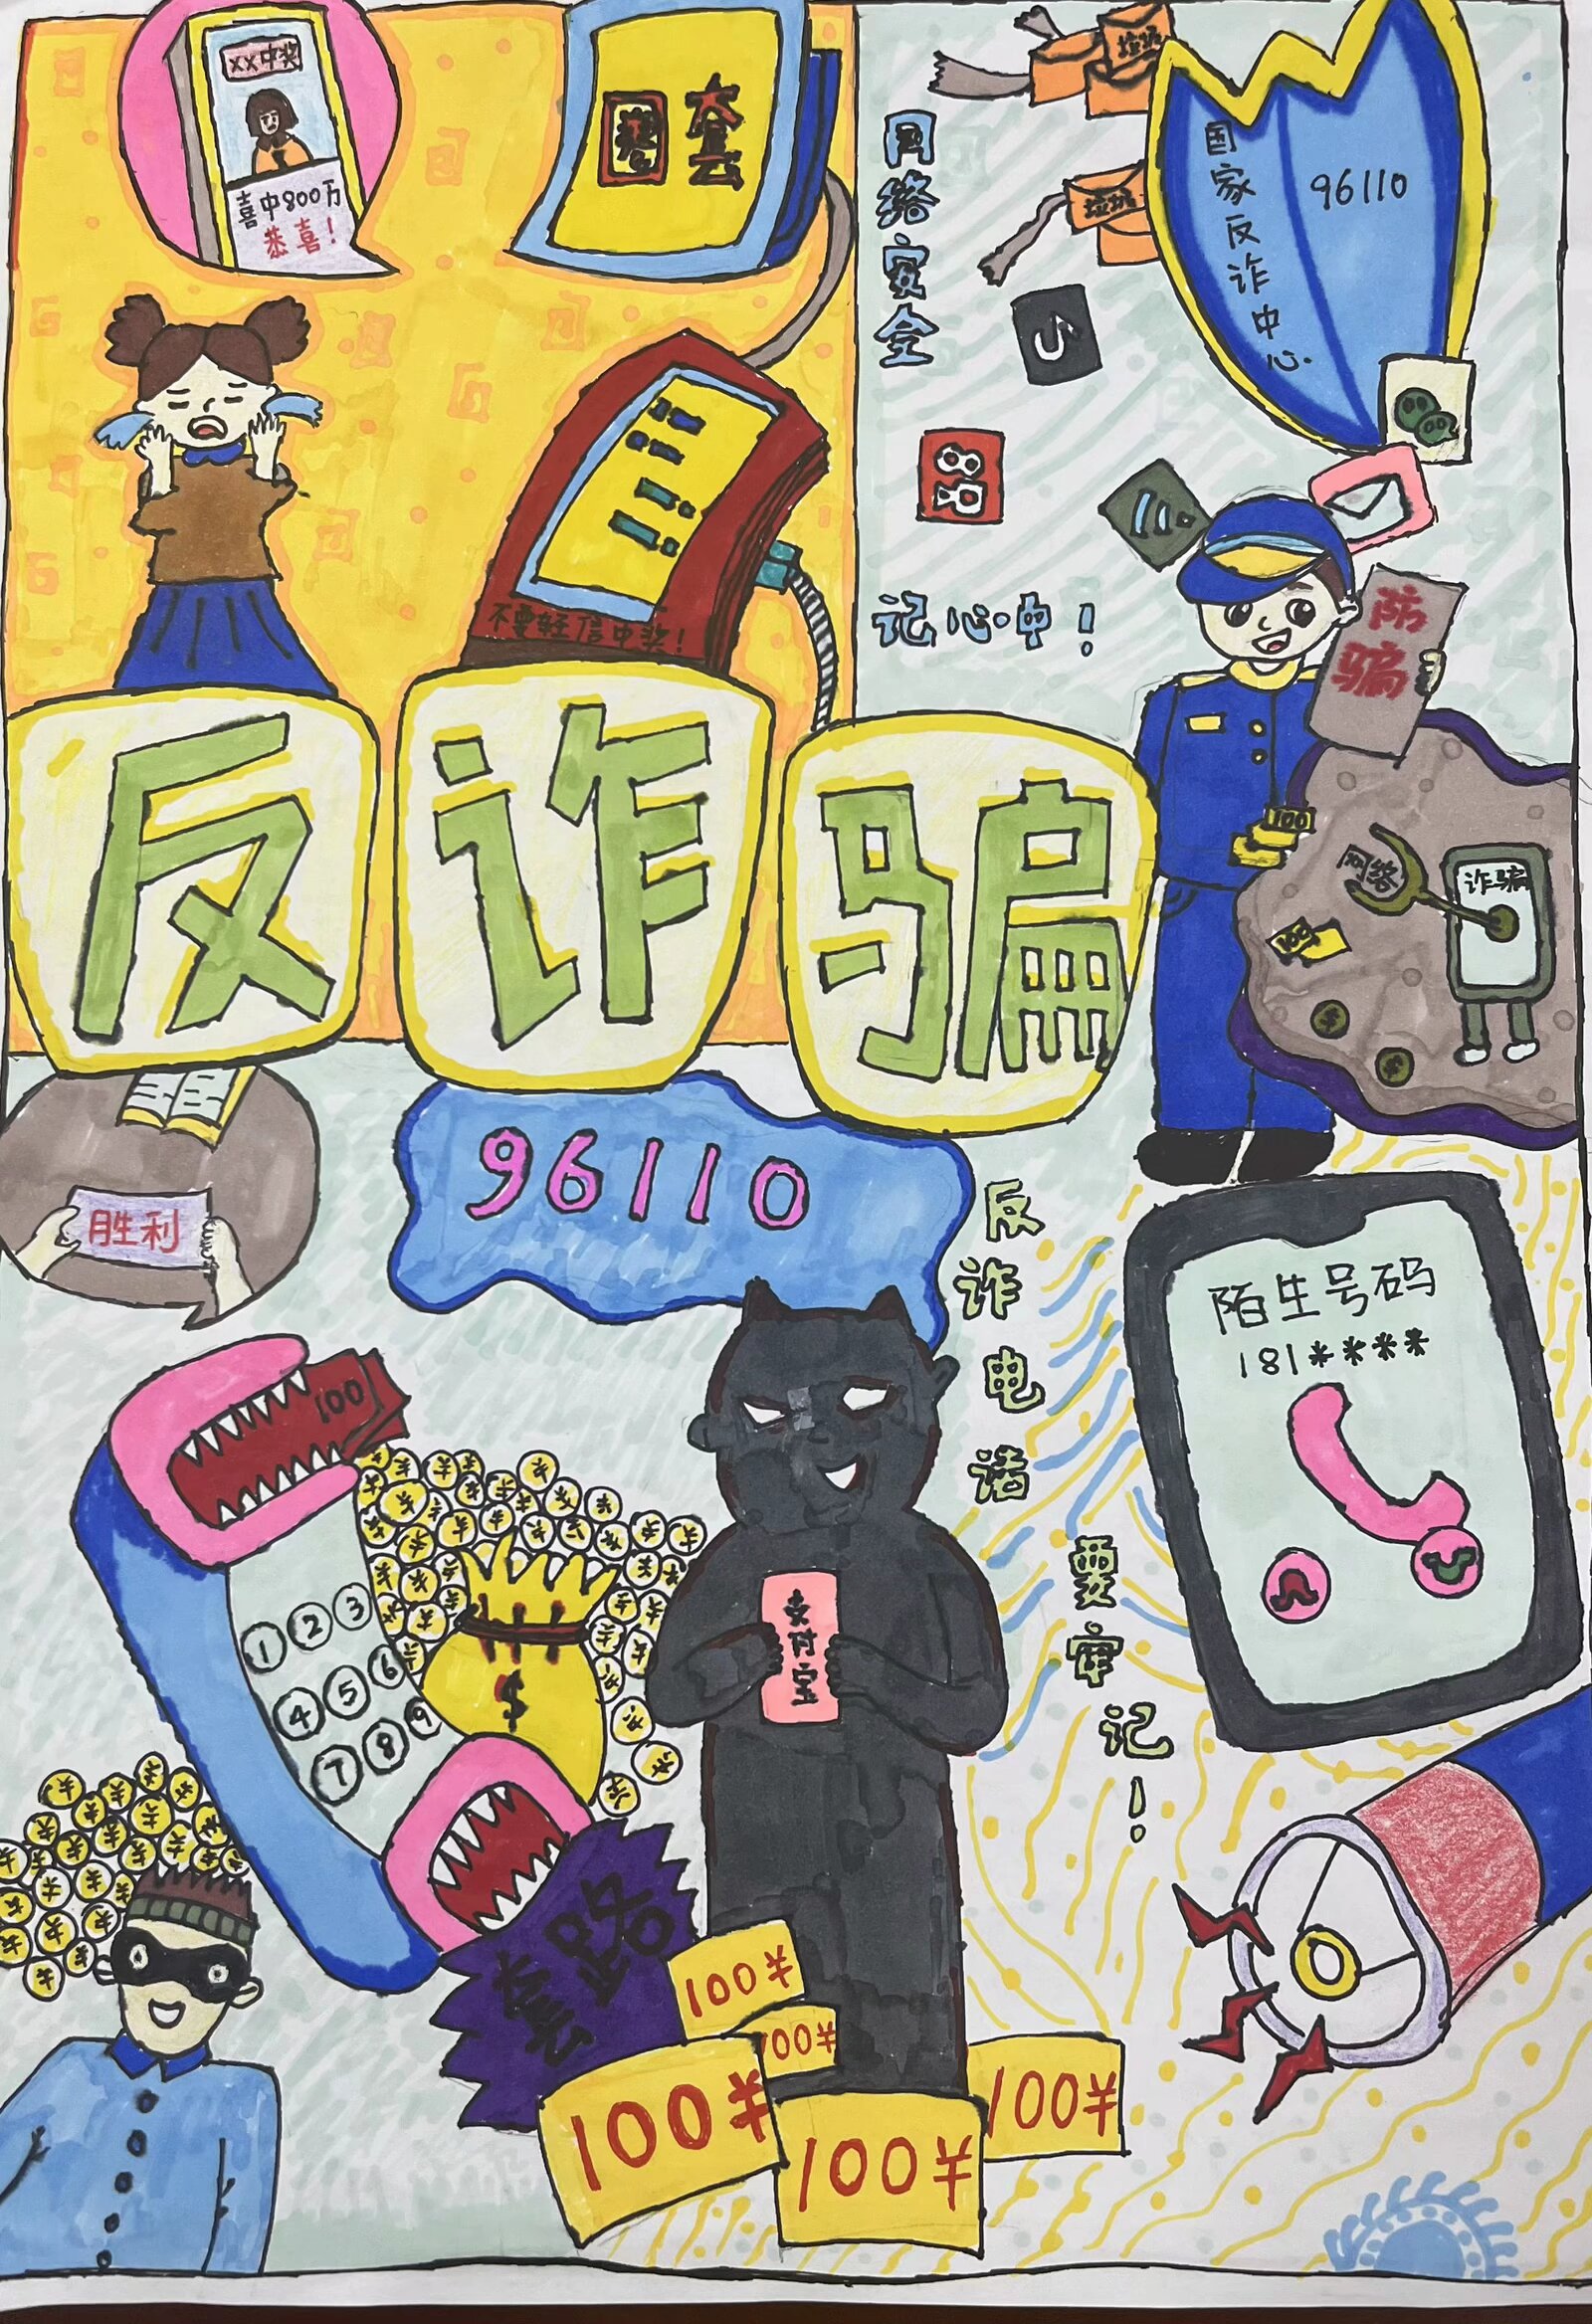 xx中奖
喜中800万
恭喜！
套
不要轻信中奖！
垃圾
垃圾
网络安全
记心中！
国家反诈中心
96110
防骗
100
网络
诈骗
100
$
$
反诈骗
胜利
96110
反诈电话
要牢记！
陌生号码
181****
100
1 2 3
4 5 6
7 8 9
$
支付宝
套路
100¥
100¥
100¥
100¥
100¥